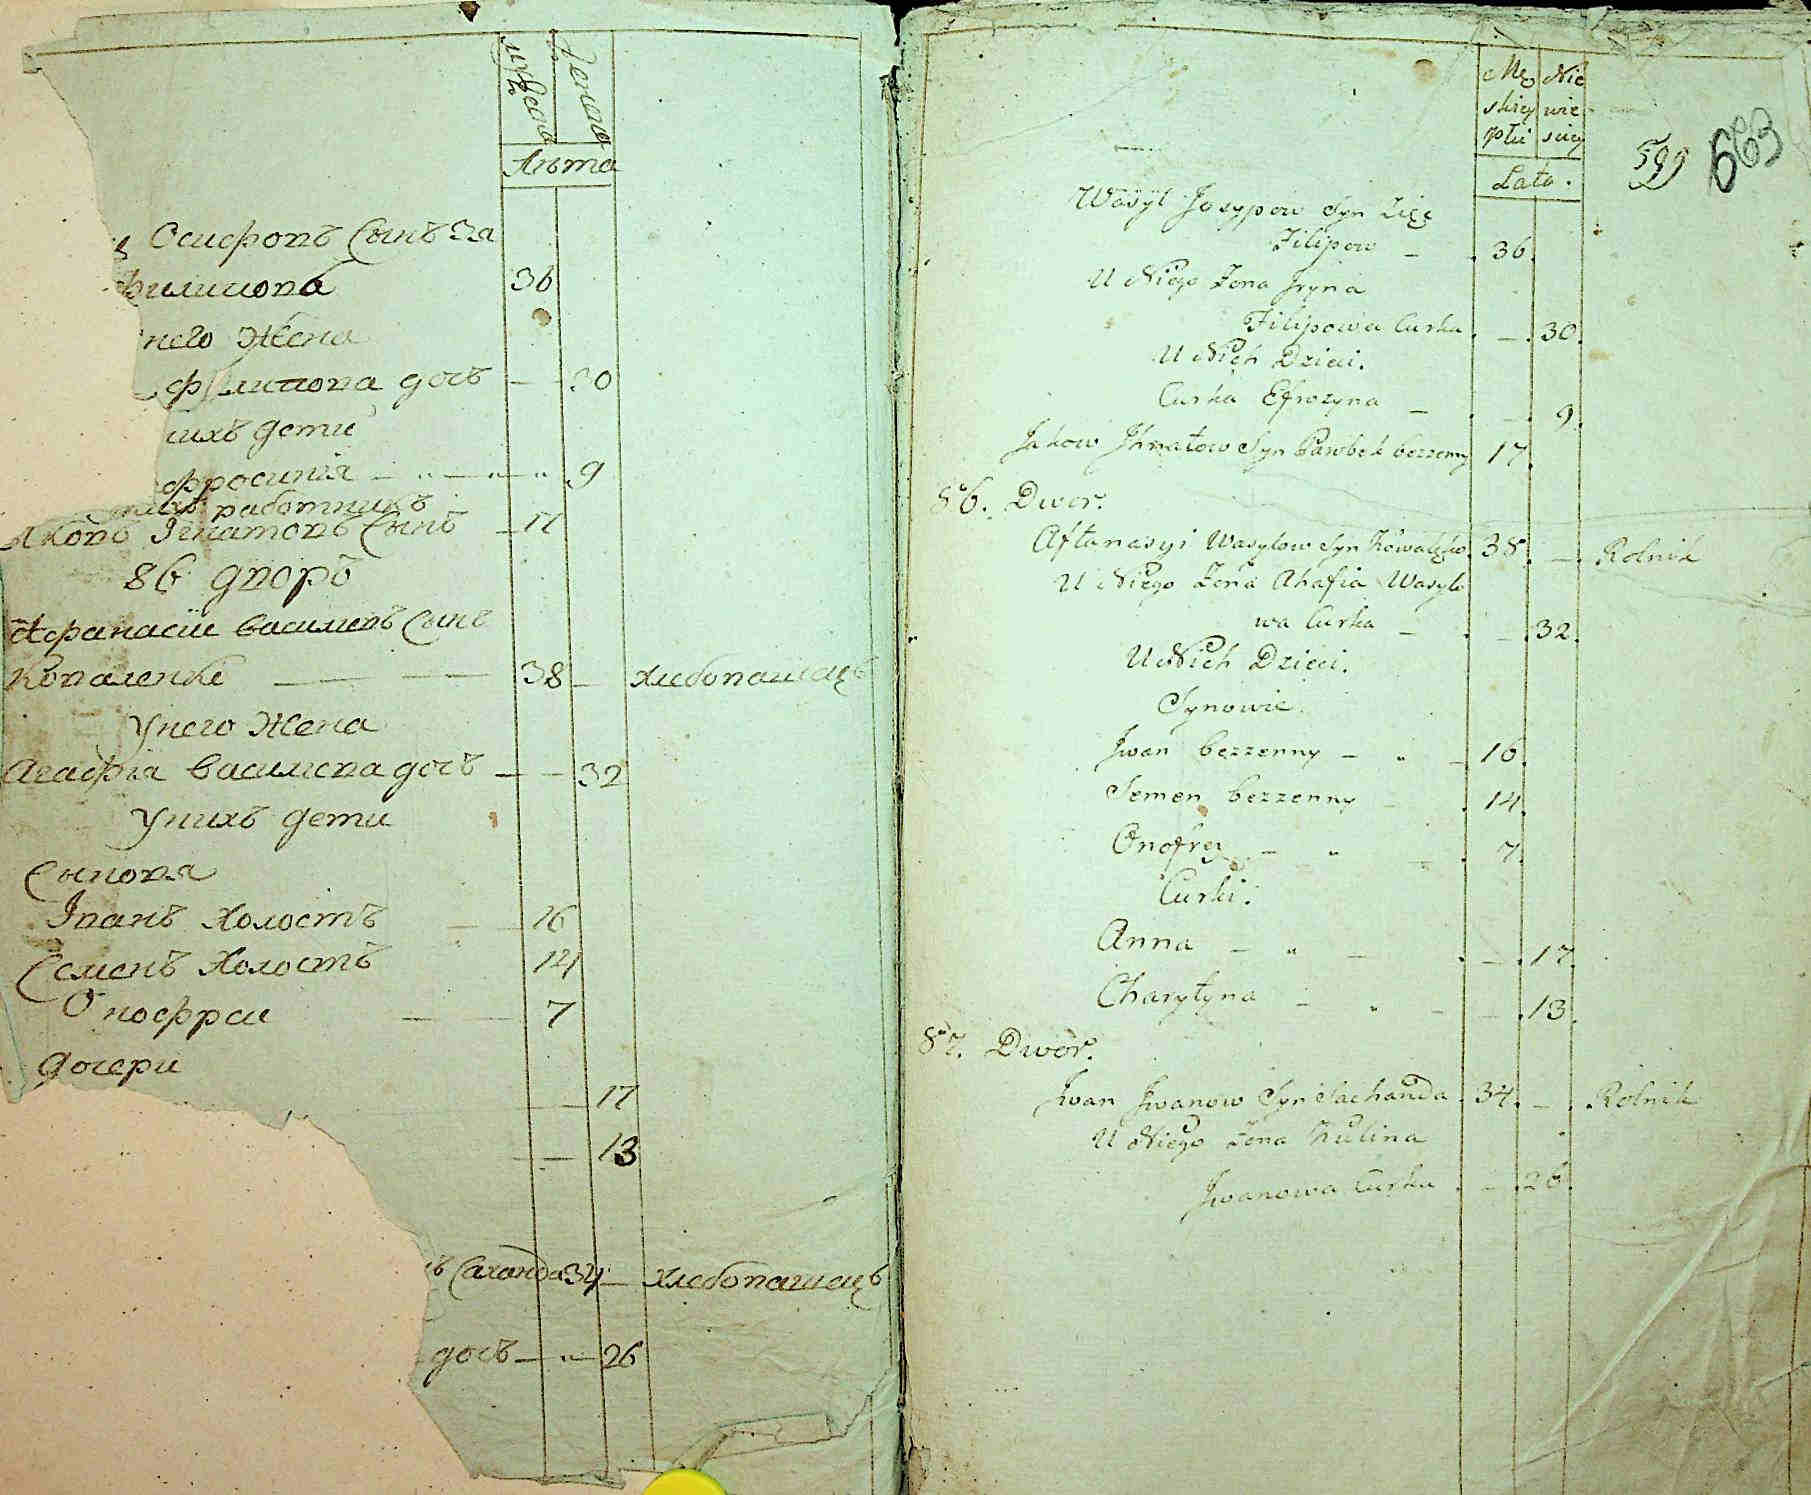 Лѣта
Осиповъ Сынъ Зя
Филипова 36
него Жена
Филипова дочь — 30
нихъ дети
фросинiя — 9
нихъ работникъ
Яковъ Iгнатовъ Сынъ — 17
86 дворъ
Афанасiи василевъ Сынъ
Коваленко — 38 — хлебопашецъ
Унего Жена
Агафiя василева дочь — — 32
Унихъ дети
Сыновя
Iванъ Холостъ — 16
Семенъ Холостъ 14
Онофреи — 7
дочери
— 17
— 13
ъ Саханда 34 — хлебопашецъ
дочь — „ — 26
Mę Nie
skiey wie
płci sciey
Lata.
599 663
Wasyl Josypow Syn Zięć
Filipow — 36.
U Niego Żona Jryna
Filipowa Curka. — 30.
U Nich Dzieci.
Curka Efrozyna — — 9.
Jakow Jhnatow Syn Parobek bezzenny 17.
86. Dwor.
Aftanasyi Wasylow Syn Kowalęko 38. — Rolnik
U Niego Żona Ahafia Wasylo
wa Curka — — 32.
U Nich Dzieci.
Synowie.
Jwan bezzenny — „ — 16.
Semen bezzenny — 14.
Onofrey — „ — 7.
Curki.
Anna — „ — — 17.
Charytyna — „ — — 13.
87. Dwor.
Jwan Jwanow Syn Sachanda 34. — Rolnik
U Niego Żona Kulina
Jwanowa Curka — 26.